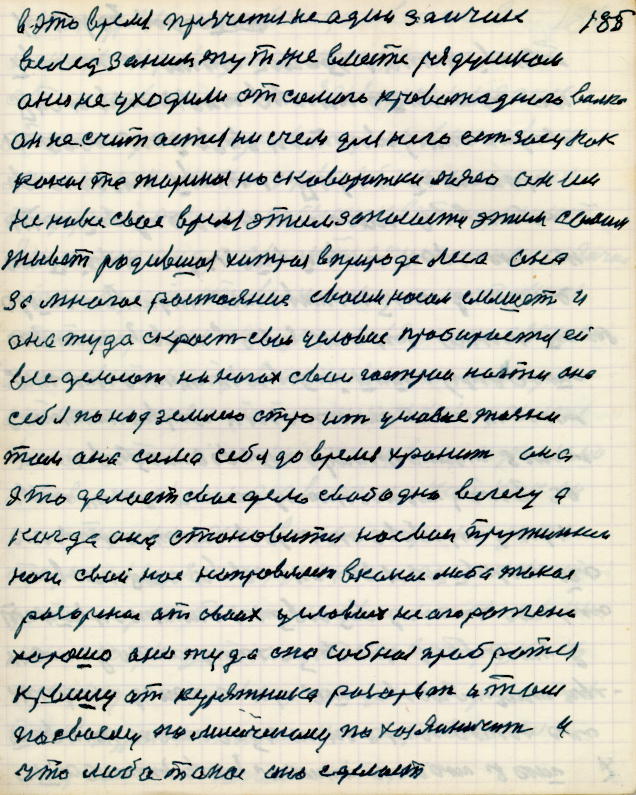 185
в это время прячется не один заичик
вслед заним тут же вместе рядушком
они не уходили от самого кровожадного валка
он не считается ни счем для него есть заец как
какая та жариная на сковоротки мясо он им
не новое свое время этим запасается этим самим
живет родившая хитрая в природе леса она
за многое растояние своим носом слышет и
она туда скроет свои условие пробирается ей
все делают на ногах свои когти она
себя по над землею строит условие жизни
там она сама себя до время хранит она
это делает свае дело свабодно в лесу а
когда она становится на свои пружинки
ноги свой нос направляет в какое либа такая
разорена от своих условиях не огорожена
хорошо она туда она собная пробратся
крышу от курятника разорвет и там
па своему па лисичаному па хазяиничит и
что либа такое она сделает